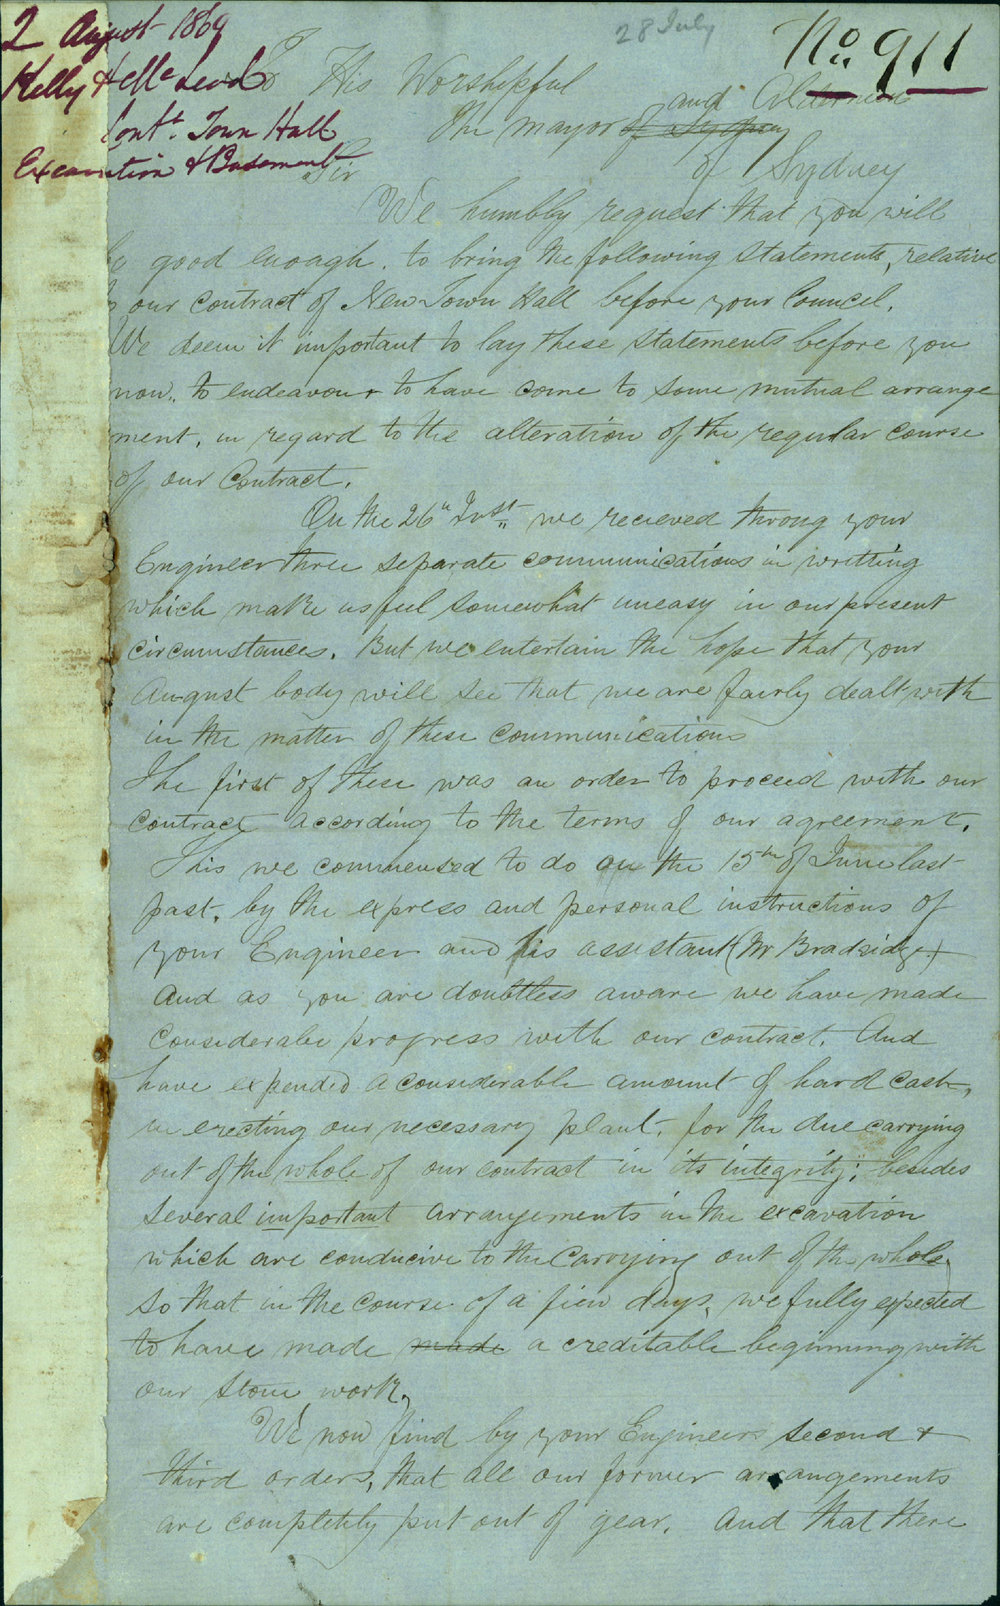 2 August 1869
28 July
No. 911
Kelly & McLeod
Cont. Town Hall
Excavation & Basement
To His Worshipful
The Mayor of Sydney and Aldermen
of Sydney
Sir
We humbly request that you will
be good enough. to bring the following statements, relative
to our contract of New Town Hall before your Councel.
We deem it important to lay these statements before you
now.. to endeavour to have come to some mutual arrange
ment, in regard to the alteration of the regular course
of our Contract.
On the 26th Inst. we recieved throug your
Engineer three separate communications in writting
which make us feel somewhat uneasy in our present
circumstances. But we entertain the hope that your
August body will see that we are fairly dealt with
in the matter of these communications
The first of these was an order to proceed with our
contract according to the terms of our agreement.
This we commensed to do on the 15th of June last
past, by the express and personal instructions of
your Engineer and his assistant (Mr Bradridge)
And as you are doubtless aware we have made
considerable progress with our contract. And
have expended a considerable amount of hard cash,
in erecting our necessary plant, for the due carrying
out of the whole of our contract in its integrity; besides
several important arrangements in the excavation
which are conducive to the carrying out of the whole,
so that in the course of a fiew days, we fully expected
to have made made a creditable beginning with
our stone work,
We now find by your Engineers second &
third orders, that all our former arrangements
are completely put out of gear. And that there